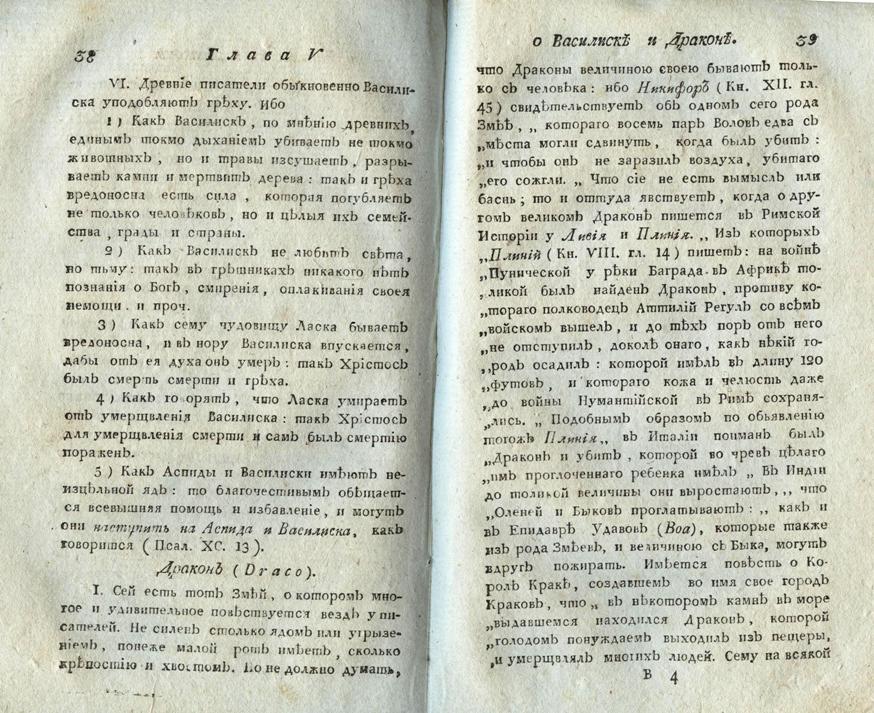 38 Глава V
VI. Древнїе писатели обыкновенно Васили-
ска уподобляютъ грѣху. Ибо
1) Какъ Василискъ, по мнѣнїю древнихъ,
единымъ токмо дыханїемъ убиваетъ не токмо
животныхъ, но и травы изсушаетъ, разры-
ваетъ камни и мертвитъ дерева: такъ и грѣха
вредоносна есть сила, которая погубляетъ
не только человѣковъ, но и цѣлыя ихъ семей-
ства, грады и страны.
2) Какъ Василискъ не любитъ свѣта,
но тьму: такъ въ грѣшникахъ никакого нѣтъ
познанїя о Богѣ, смиренїя, оплакиванїя своея
немощи. и проч.
3) Какъ сему чудовищу Ласка бываетъ
вредоносна, и въ нору Василиска впускается,
дабы отъ ея духа онъ умеръ: такъ Хрїстосъ
былъ смерть смерти и грѣха.
4) Какъ говорятъ, что Ласка умираетъ
отъ умерщвленїя Василиска: такъ Хрїстосъ
для умерщвленїя смерти и самъ былъ смертїю
пораженъ.
5) Какъ Аспиды и Василиски имѣютъ не-
изцѣльной ядъ: то благочестивымъ обѣщает-
ся всевышняя помощь и избавленїе, и могутъ
они наступить на Аспида и Василиска, какъ
говорится (Псал. XC. 13).
Драконъ (Draco).
I. Сей есть тотъ Змѣй, о которомъ мно-
гое и удивительное повѣствуется вездѣ у пи-
сателей. Не силенъ столько ядомъ или угрызе-
нїемъ, понеже малой ротъ имѣетъ, сколько
крѣпостїю и хвостомъ. Но не должно думать,
о Василискѣ и Драконѣ. 39
что Драконы величиною своею бываютъ толь-
ко съ человѣка: ибо Никифоръ (Кн. XII. гл.
45) свидѣтельствуетъ объ одномъ сего рода
Змѣѣ, „ котораго восемь паръ Воловъ едва съ
„мѣста могли сдвинуть, когда былъ убитъ:
„и чтобы онъ не заразилъ воздуха, убитаго
„его сожгли. „ Что сїе не есть вымыслъ или
баснь; то и оттуда явствуетъ, когда о дру-
гомъ великомъ Драконѣ пишется въ Римской
Исторїи у Ливїя и Плинїя. „ Изъ которыхъ
„Плинїй (Кн. VIII. гл. 14) пишетъ: на войнѣ
„Пунической у рѣки Баграда въ Африкѣ то-
„ликой былъ найденъ Драконъ, противу ко-
„тораго полководецъ Аттилїй Регулъ со всѣмъ
„войскомъ вышелъ, и до тѣхъ поръ отъ него
„не отступилъ, доколѣ онаго, какъ нѣкїй го-
„родъ осадилъ: которой имѣлъ въ длину 120
„футовъ, и котораго кожа и челюсть даже
„до войны Нумантїйской въ Римѣ сохраня-
„лись. „ Подобнымъ образомъ по обьявленїю
тогожъ Плинїя„, въ Италїи пойманъ былъ
„Драконъ и убитъ, которой во чревѣ цѣлаго
„имъ проглоченнаго ребенка имѣлъ „ Въ Индїи
до толикой величины они выростаютъ, ,, что
„Оленей и Быковъ проглатываютъ: „ какъ и
въ Епидаврѣ Удавовъ (Boa), которые также
изъ рода Змѣевъ, и величиною съ Быка, могутъ
вдругъ пожирать. Имѣется повѣсть о Ко-
ролѣ Кракѣ, создавшемъ во имя свое городъ
Краковъ, что „ въ нѣкоторомъ камнѣ въ море
„выдавшемся находился Драконъ, которой
„голодомъ понуждаемъ выходилъ изъ пещеры,
„и умерщвлялъ многихъ людей. Сему на всякой
В 4